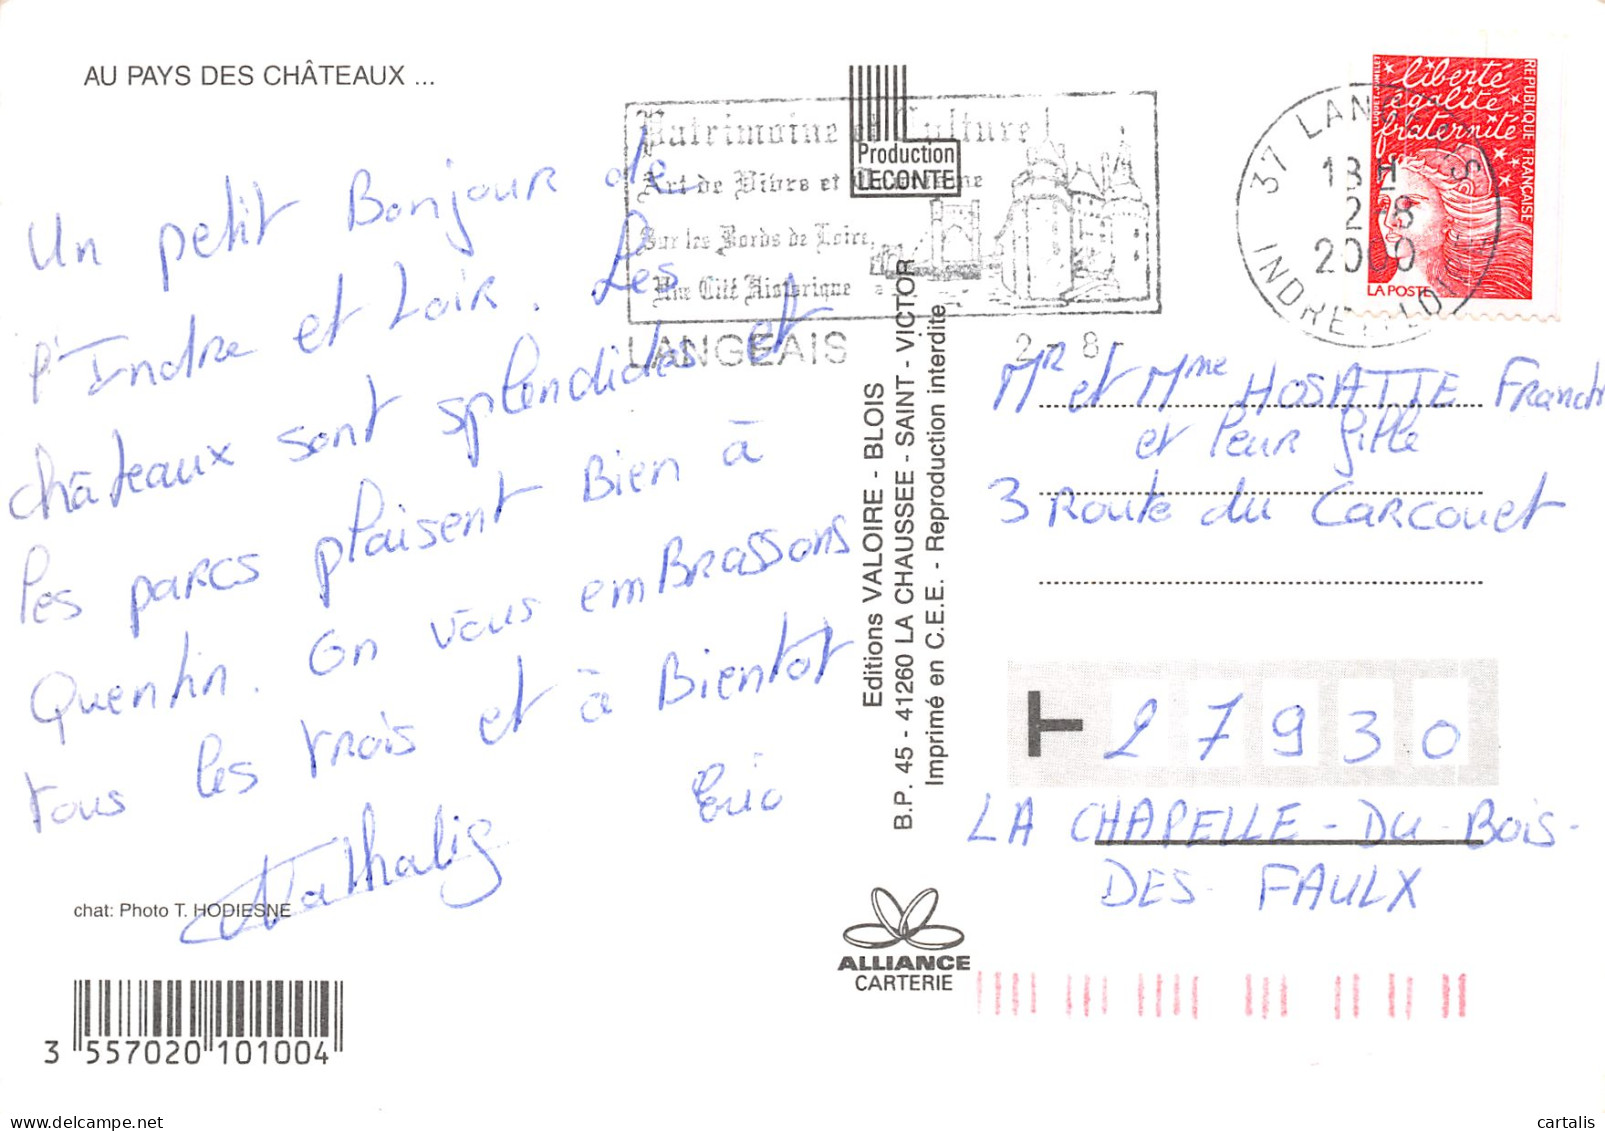 AU PAYS DES CHÂTEAUX ...
Un petit Bonjour de
l'Indre et Loir. Les
châteaux sont splendides et
les parcs plaisent Bien à
Quentin. On vous emBrassons
tous les trois et à Bientot
Eric
Nathalie
chat: Photo T. HODIESNE
3 557020 101004
Patrimoine et Culture
Art de Vivre et
Sur les Bords de Loire,
Une Cité Historique
LANGEAIS
2 - 8 -
Production
LECONTE
Editions VALOIRE - BLOIS
B.P. 45 - 41260 LA CHAUSSEE - SAINT - VICTOR
Imprimé en C.E.E. - Reproduction interdite
ALLIANCE
CARTERIE
37 LANGEAIS
18H
2-8
2000
INDRE ET LOIRE
liberté
égalité
fraternité
REPUBLIQUE FRANÇAISE
LA POSTE
Mr et Mme HOSIATTE Franck
et leur fille
3 Route du Carcouet
27930
LA CHAPELLE - DU - BOIS -
DES FAULX
cartalis